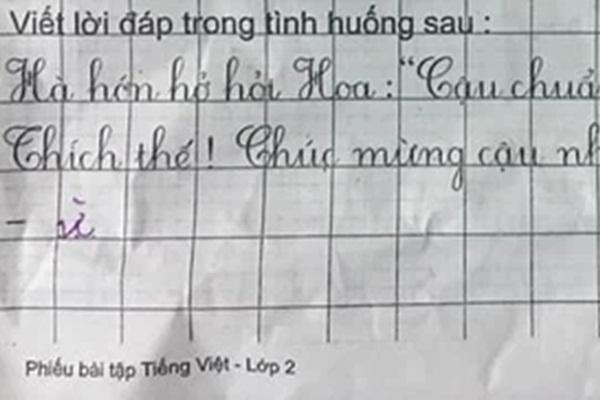 Viết lời đáp trong tình huống sau :
Hà hớn hở hỏi Hoa : "Cậu chuẩ
Thích thế ! Chúc mừng cậu nh
- ừ
Phiếu bài tập Tiếng Việt - Lớp 2